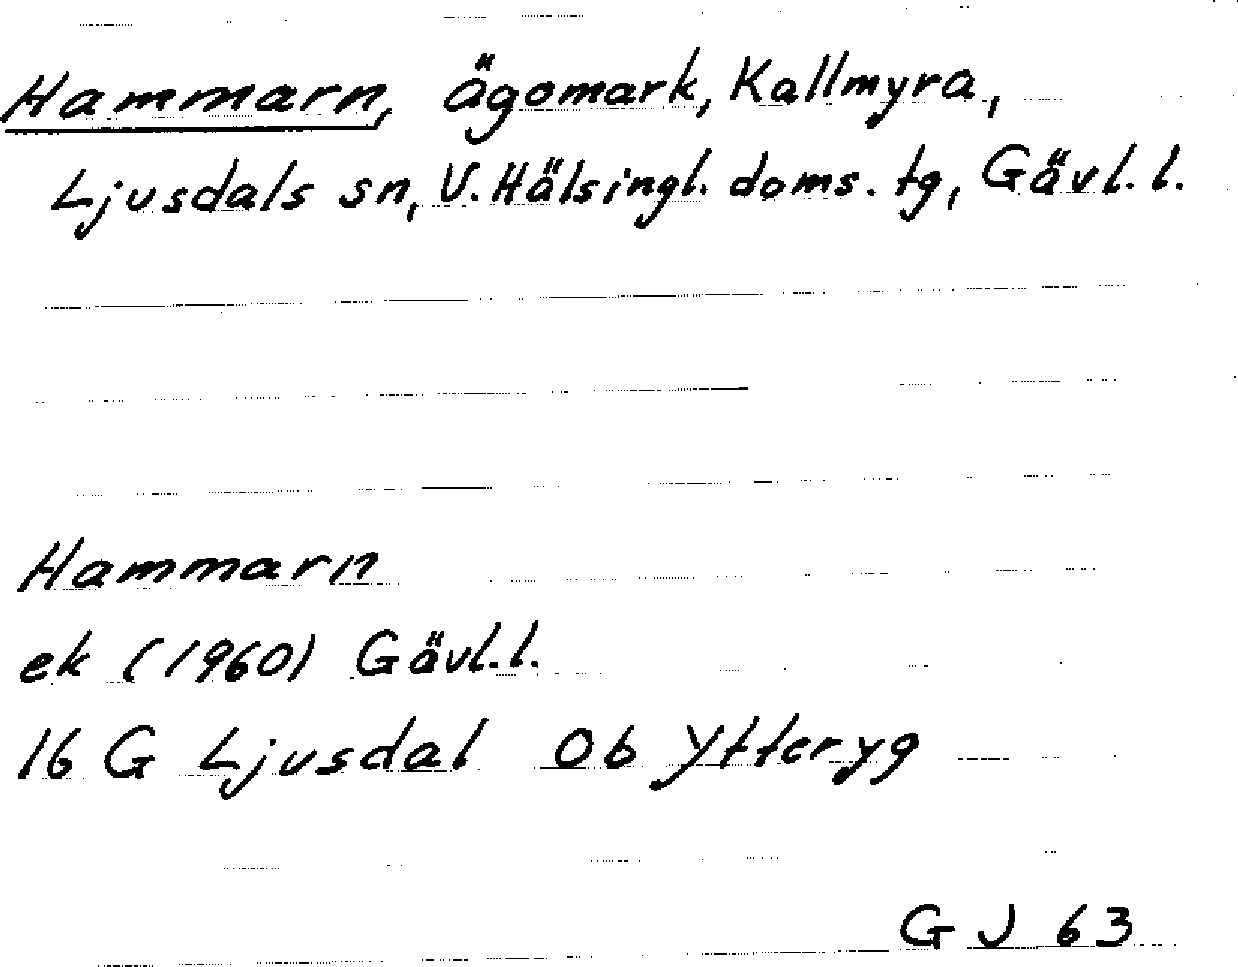 Hammarn, ägomark, Kallmyra,
Ljusdals sn, V. Hälsingl. doms. tg, Gävl. l.
Hammarn
ek (1960) Gävl. l.
16 G Ljusdal 0b Ytteryg
G J 63